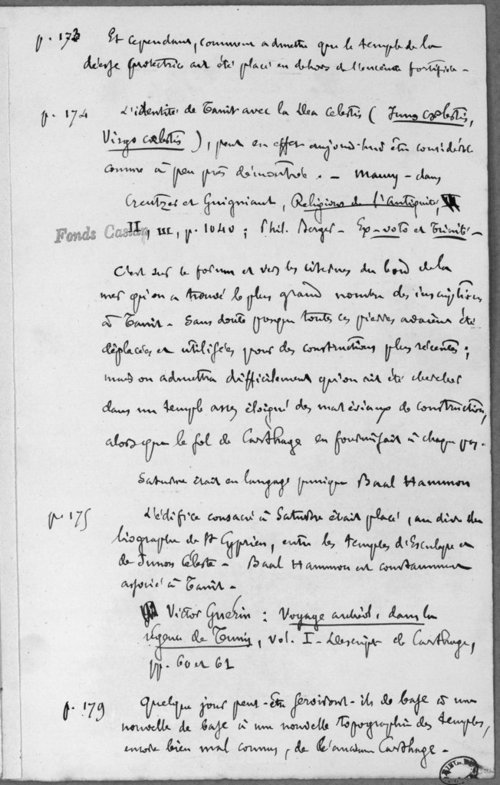 p. 173 Et cependant, comment admettre que le temple de la
déesse protectrice ait été placé en dehors de l'enceinte fortifiée -
p. 174 L'identité de Tanit avec la Dea Celestis (Juno cœlestis,
Virgo cœlestis), peut en effet aujourd'hui être considérée
comme à peu près démontrée. - Maury - dans
Creutzer et Guigniaut, Religions de l'Antiquité,
Fonds II, III, p. 1040 ; Phil. Berger - Ex-voto et Trinité -
C'est sur le forum et vers les citernes du bord de la
mer qu'on a trouvé le plus grand nombre des inscriptions
à Tanit - Sans doute presque toutes ces pierres avaient été
déplacées et utilisées pour des constructions plus récentes ;
mais on admettra difficilement qu'on ait été chercher
dans un temple assez éloigné des matériaux de construction,
alors que le sol de Carthage en fournissait à chaque pas.
Saturne était en langage punique Baal Hammon
p. 175 L'édifice consacré à Saturne était placé, au dire du
biographe de St Cyprien, entre les temples d'Esculape et
de Junon Céleste - Baal Hammon est constamment
associé à Tanit -
Victor Guérin : Voyage archéol. dans la
régence de Tunis, vol. I - Descript. de Carthage,
pp. 60 et 61
p. 179 Quelque jour peut-être serviront-ils de base à une
nouvelle de base à une nouvelle topographie des temples,
encore bien mal connus, de l'ancienne Carthage -